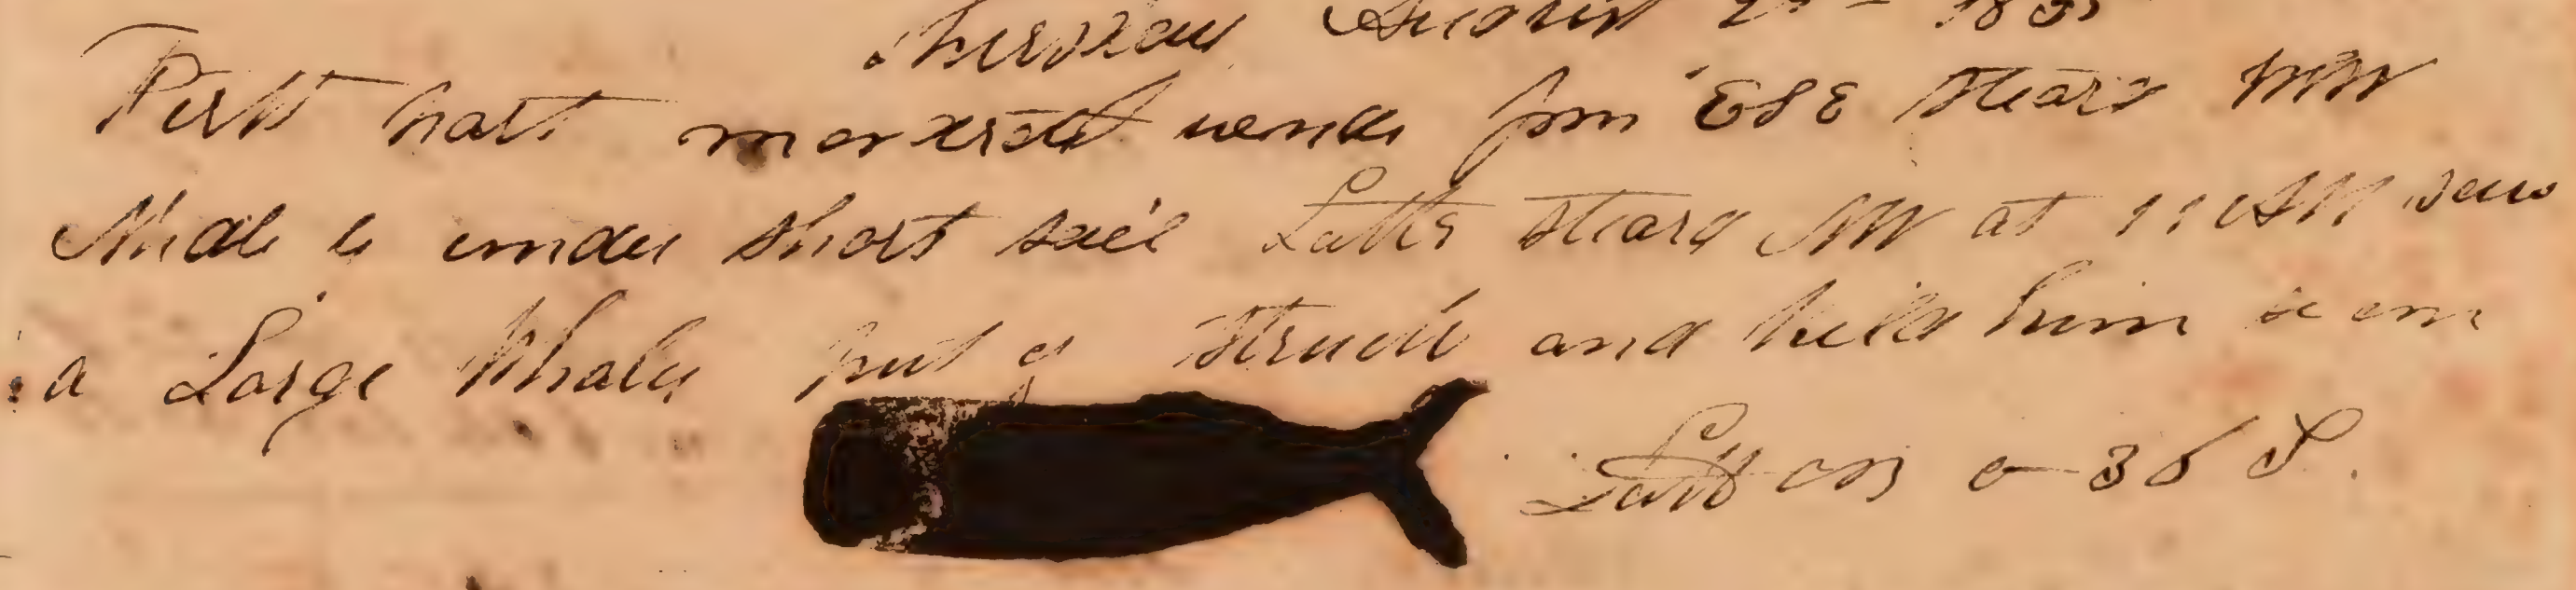 Thursday August 2 185
First part moderate winds from ESE steard NW
Midle & under short sail Latter steard NW at 11 AM saw
a Large Whale put of struck and kild him
Latt 0-36 S.